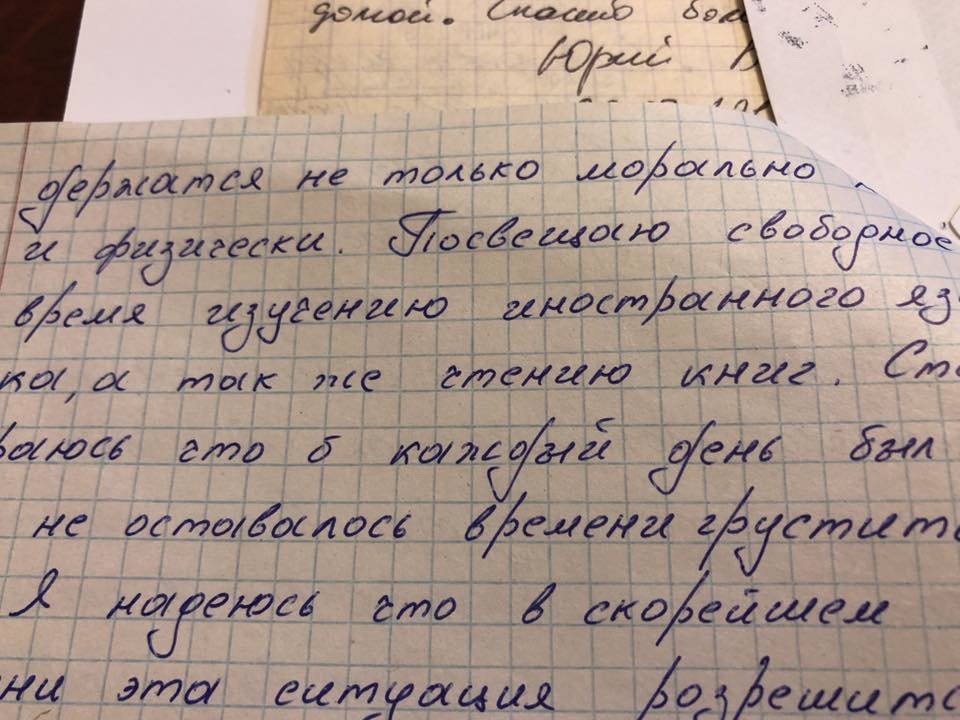 домой. Спасибо
Юрий
держатся не только морально
и физически. Посвещаю свободное
время изучению иностранного яз
ка, а так же чтению книг. Ст
раюсь что б каждый день был
не оставалось времени грустить
Я надеюсь что в скорейшем
ни эта ситуация розрешитс